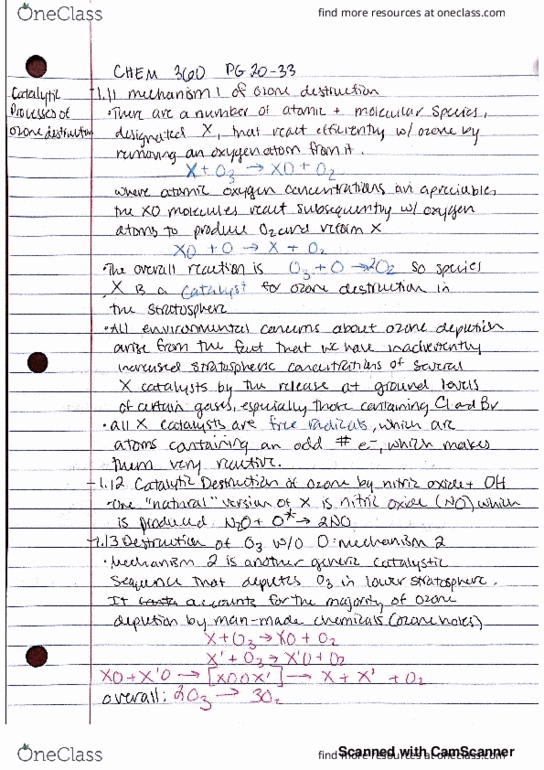 OneClass
find more resources at oneclass.com
CHEM 360 PG 20-33
Catalytic
Processes of
ozone destruction
-1.11 mechanism 1 of ozone destruction
•There are a number of atomic + molecular species,
designated X, that react efficiently w/ ozone by
removing an oxygen atom from it.
X + O₃ → XO + O₂
where atomic oxygen concentrations are apreciable,
the XO molecules react subsequently w/ oxygen
atoms to produce O₂ and reform X
XO + O → X + O₂
•The overall reaction is O₃ + O → 2O₂ so species
X is a catalyst for ozone destruction in
the stratosphere
•All environmental concerns about ozone depletion
arise from the fact that we have inadvertently
increased stratospheric concentrations of several
X catalysts by the release at ground levels
of certain gases, especially those containing Cl and Br
•all X catalysts are free radicals, which are
atoms containing an odd # e-, which makes
them very reactive.
-1.12 Catalytic Destruction of ozone by nitric oxide + OH
•One "natural" version of X is nitric oxide (NO) which
is produced N₂O + O* → 2NO
-1.13 Destruction of O₃ w/o O: mechanism 2
•Mechanism 2 is another generic catalystic
sequence that depletes O₃ in lower stratosphere.
It accounts for the majority of ozone
depletion by man-made chemicals (ozone holes)
X + O₃ → XO + O₂
X' + O₃ → X'O + O₂
XO + X'O → [XOOX'] → X + X' + O₂
overall: 2O₃ → 3O₂
OneClass
find more resources at oneclass.com
Scanned with CamScanner